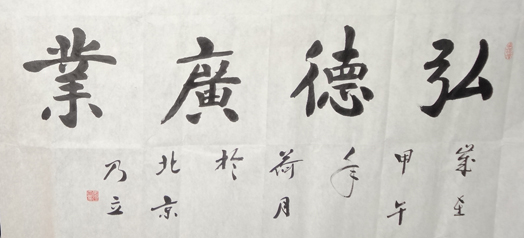 弘德廣業
歲在
甲午
年
荷月
於
北京
乃立